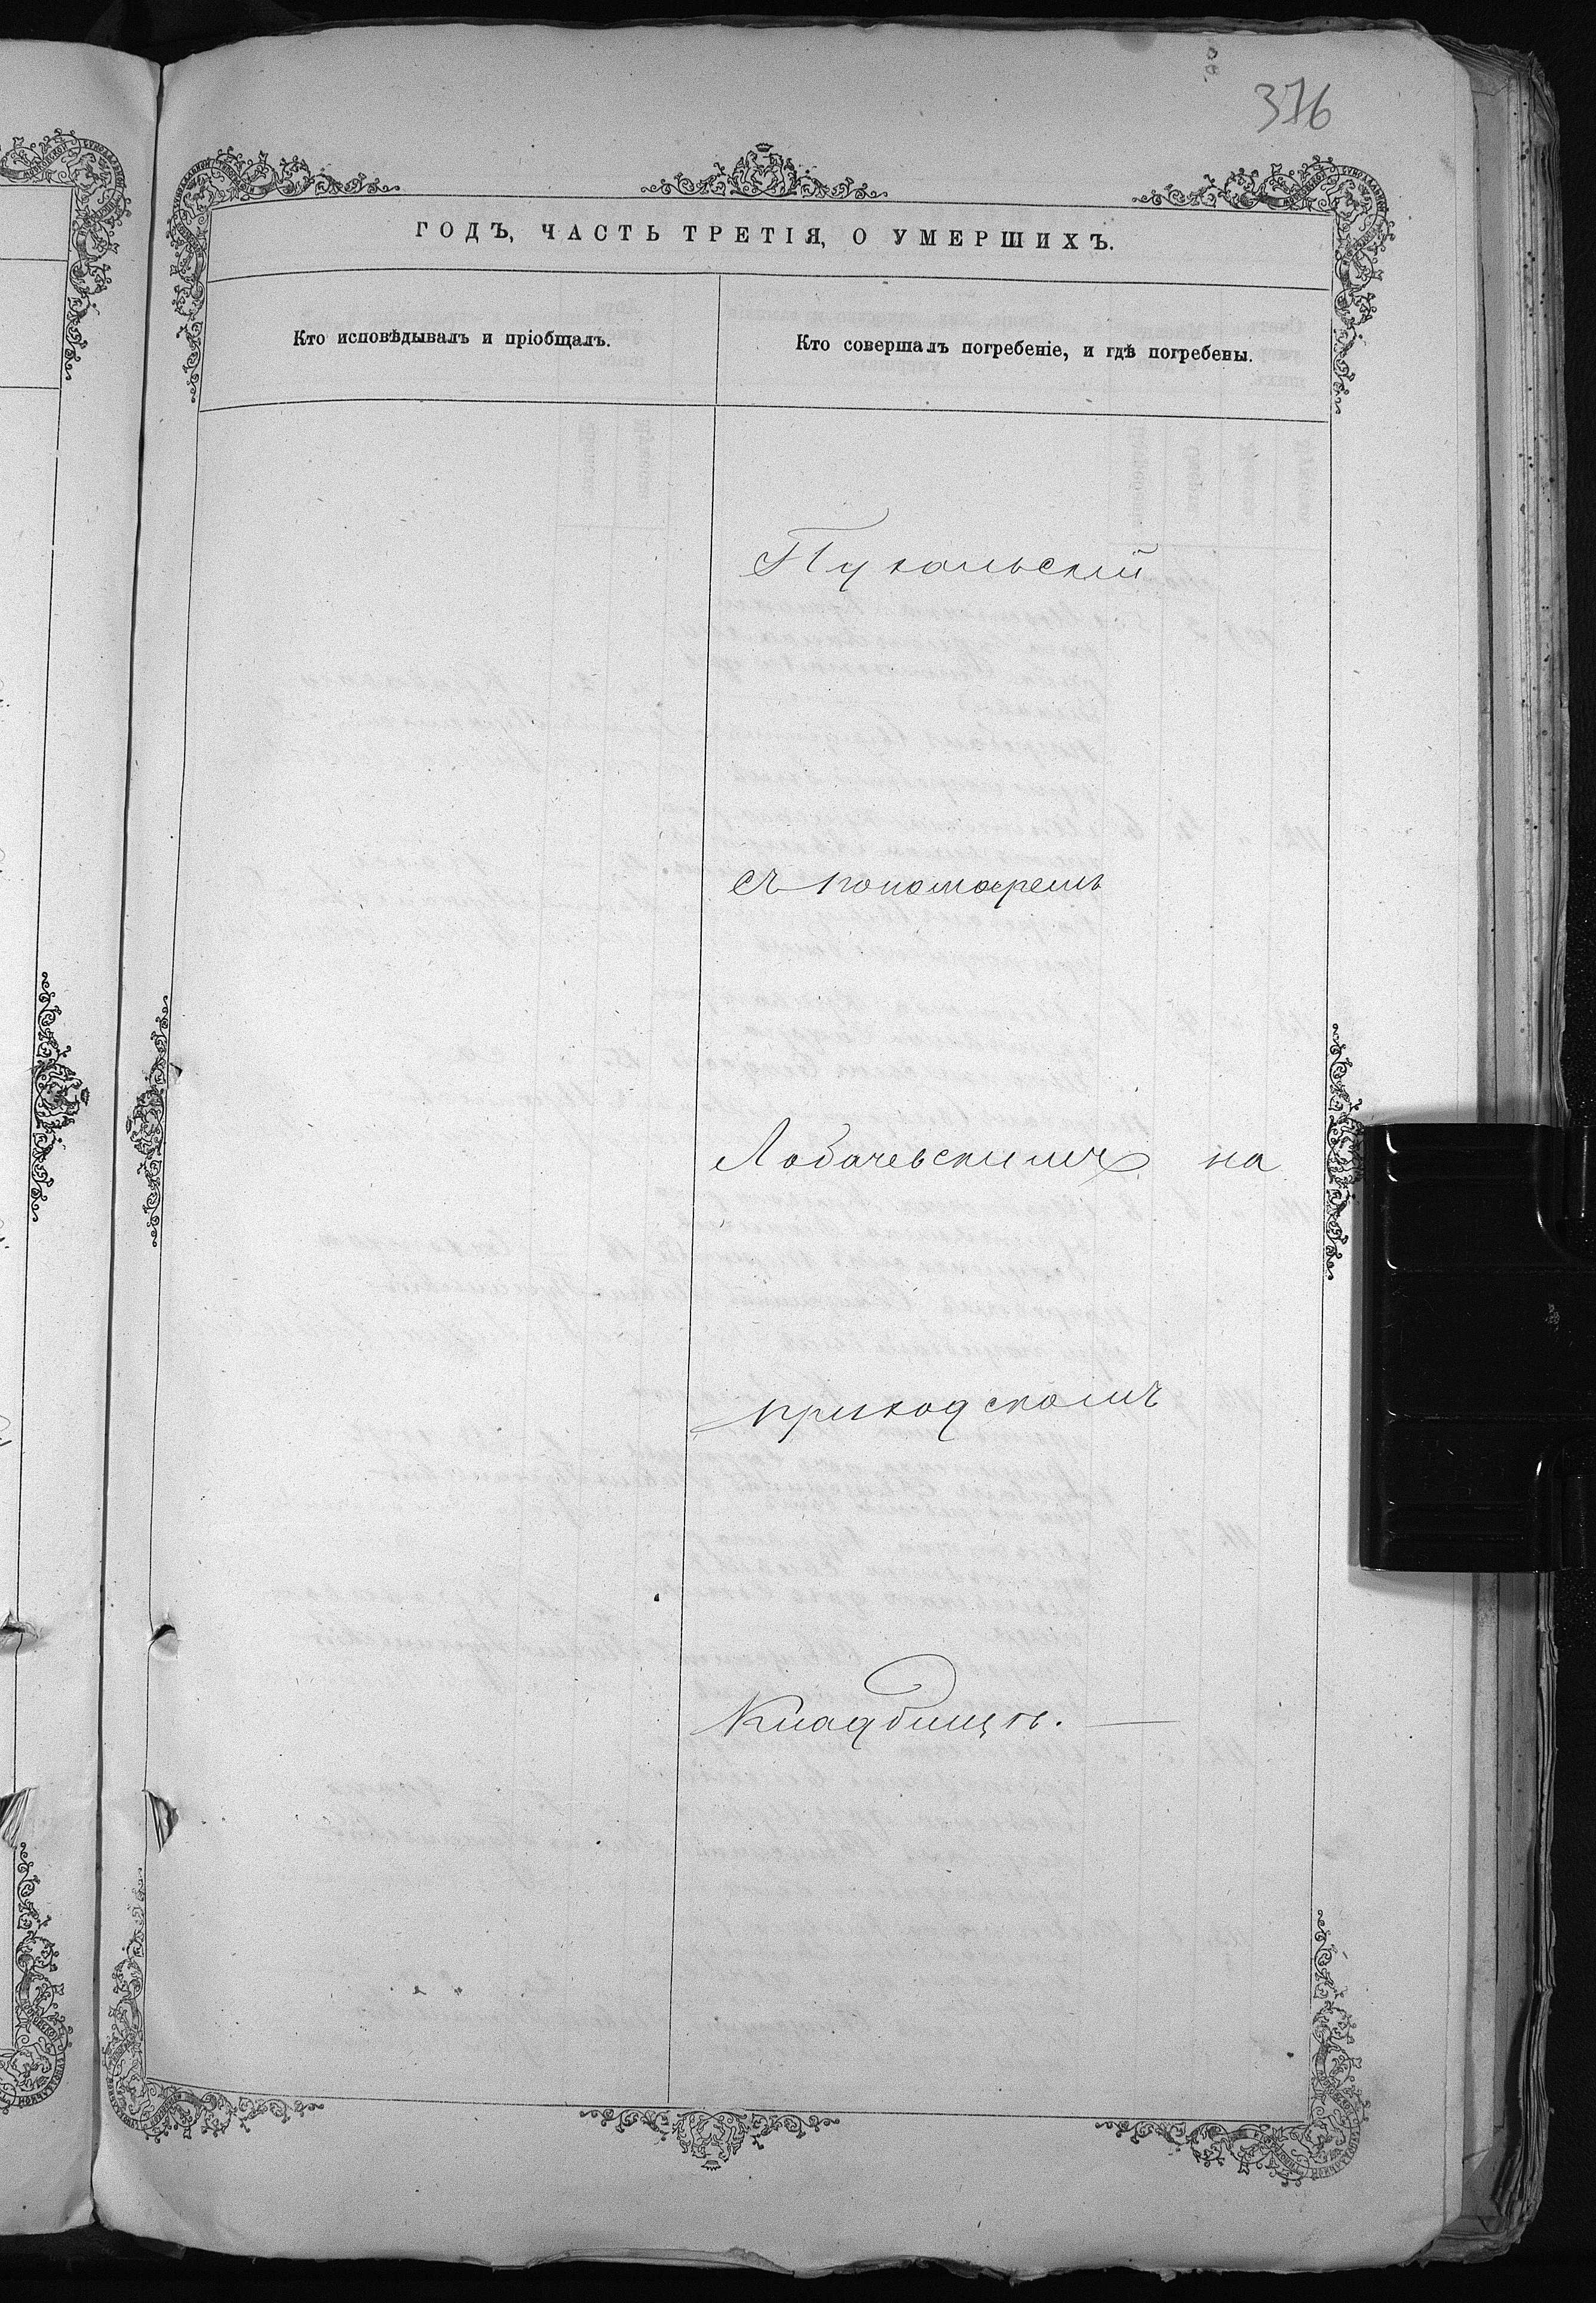 376
ГОДЪ, ЧАСТЬ ТРЕТІЯ, О УМЕРШИХЪ.
Кто исповѣдывалъ и пріобщалъ.
Кто совершалъ погребеніе, и гдѣ погребены.
Пукальскій
съ пономаремъ
Лобачевскимъ на
приходскомъ
Кладбищѣ.